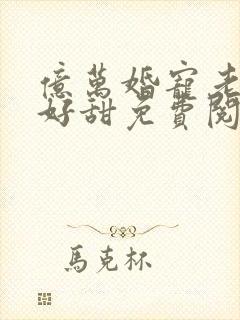 億萬婚寵老
好甜免費閱
馬克杯